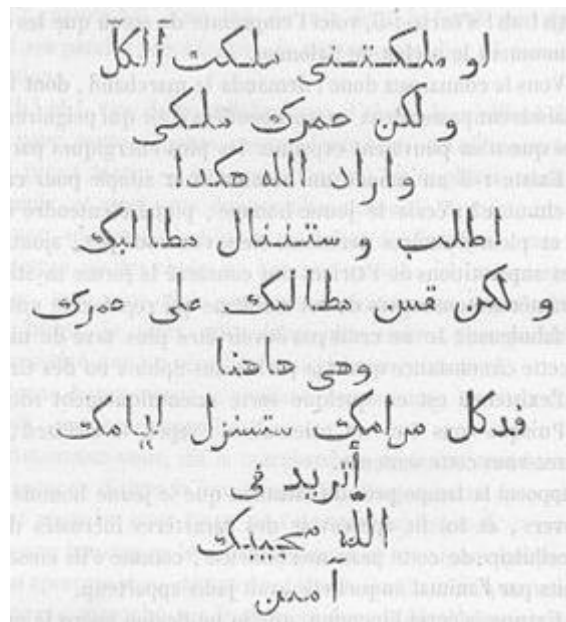 لو ملكتنى ملكت آلكل
و لكن عمرك ملكى
واراد الله هكذا
اطلب و ستننال مطالبك
و لكن قس مطالبك على عمرك
وهى هاهنا
فبكل مرامك ستنزل ايامك
أتريد فى
الله مجيبك
آمين